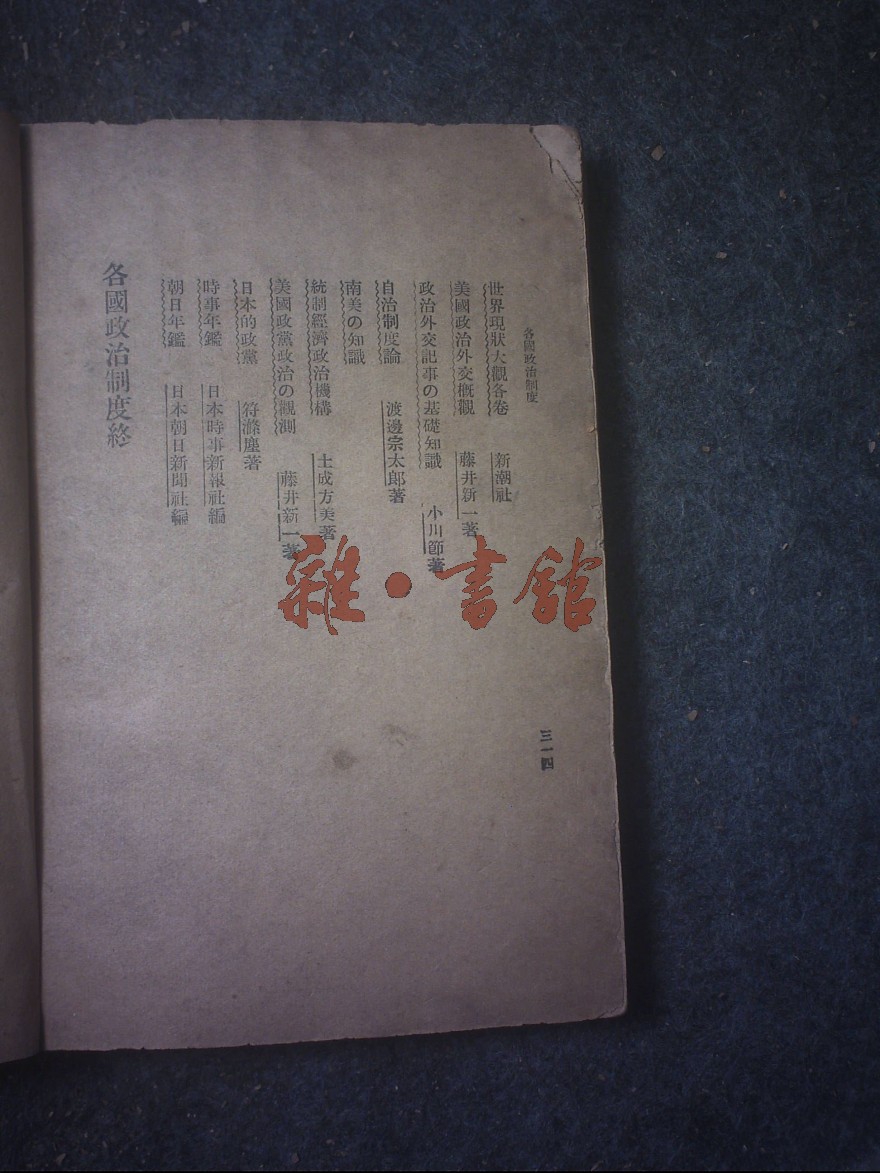 各國政治制度
世界現狀大觀各卷 新潮社
美國政治外交概觀 藤井新一著
政治外交記事の基礎知識 小川節著
自治制度論 渡邊宗太郎著
南美の知識
統制經濟政治機構 土成方美著
美國政黨政治の觀測 藤井新一著
日本的政黨 符滌塵著
時事年鑑 日本時事新報社編
朝日年鑑 日本朝日新聞社編
各國政治制度終
三一四
雜·書館